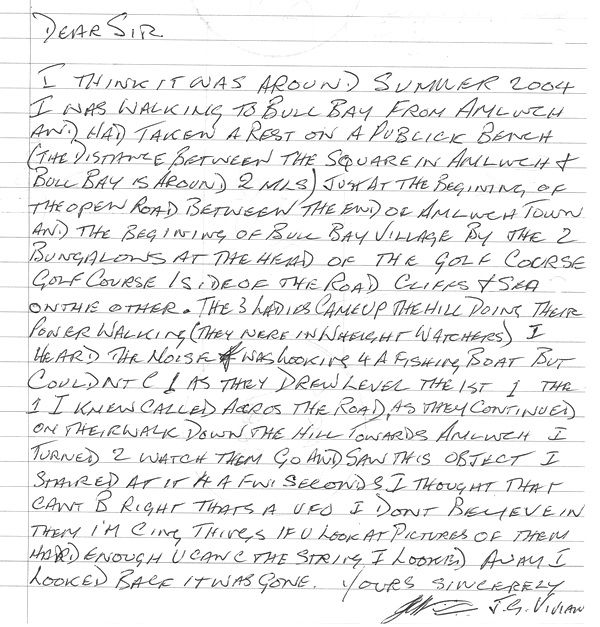 DEAR SIR
I THINK IT WAS AROUND SUMMER 2004
I WAS WALKING TO BULL BAY FROM AMLWCH
AND HAD TAKEN A REST ON A PUBLICK BENCH
(THE DISTANCE BETWEEN THE SQUARE IN AMLWCH &
BULL BAY IS AROUND 2 MLS) JUST AT THE BEGINING OF
THE OPEN ROAD BETWEEN THE END OF AMLWCH TOWN
AND THE BEGINING OF BULL BAY VILLAGE BY THE 2
BUNGALOWS AT THE HEAD OF THE GOLF COURSE
GOLF COURSE 1 SIDE OF THE ROAD CLIFFS & SEA
ON THE OTHER. THE 3 LADIES CAME UP THE HILL DOING THEIR
POWER WALKING (THEY WERE IN WHEIGHT WATCHERS) I
HEARD THE NOISE & WAS LOOKING 4 A FISHING BOAT BUT
COULDNT C 1 AS THEY DREW LEVEL THE 1ST 1 THE
1 I KNEW CALLED ACROS THE ROAD, AS THEY CONTINUED
ON THEIR WALK DOWN THE HILL TOWARDS AMLWCH I
TURNED 2 WATCH THEM GO AND SAW THIS OBJECT I
STAIRED AT IT 4 A FWI SECONDS I THOUGHT THAT
CANT B RIGHT THATS A UFO I DONT BELIEVE IN
THEM I'M CING THINGS IF U LOOK AT PICTURES OF THEM
HARD ENOUGH U CAN C THE STRING I LOOKED AWAY I
LOOKED BACK IT WAS GONE. YOURS SINCERELY
J.G. VIVIAN